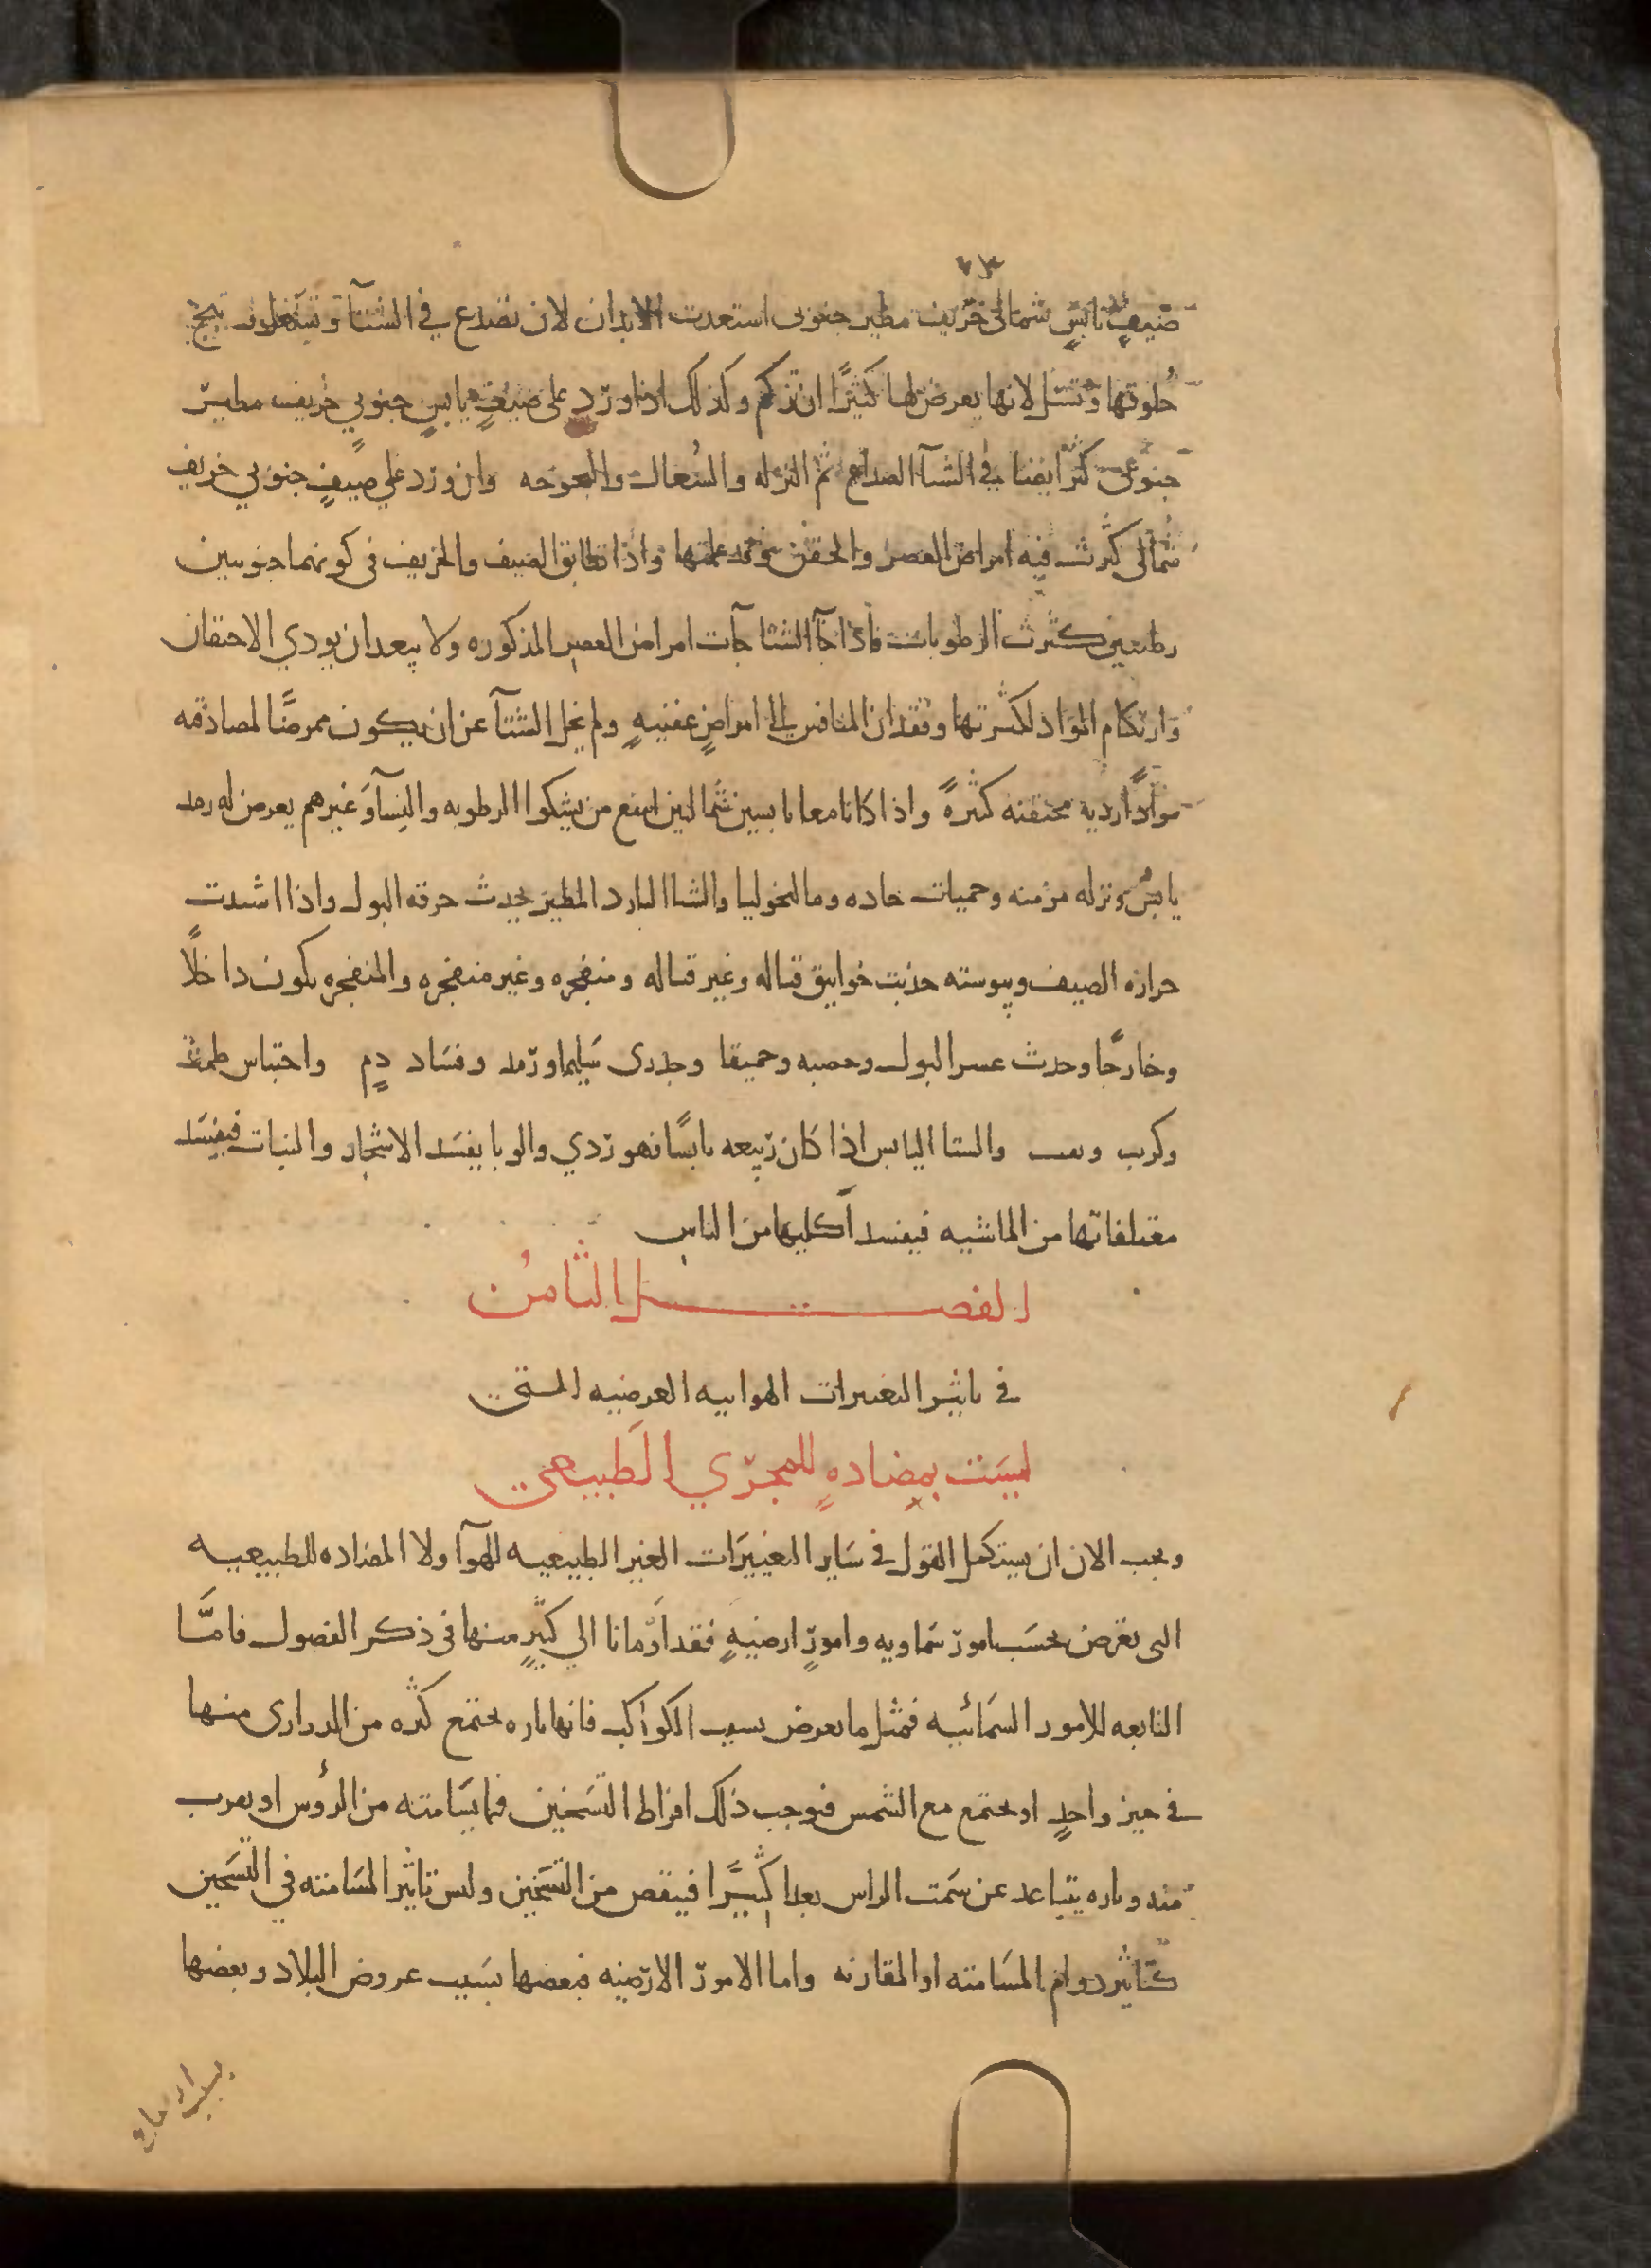 صيف يابس شمالى خريف مطير جنوبى استعدت الابدان لان تصدع في الشتآ وتسعل وتبح
حلوقها وتسل لانها يعرض لها كثيرًا ان تزكم وكذلك اذا ورد على صيفٍ يابسٍ جنوبي خريف مطير
كثر ايضا في الشتآ الصداع ثم النزله والسُعال والبحوحه وان ورد علي صيفٍ جنوبي خريف
شمالى كثرت فيه امراض العصر والحقن وقد علمتها واذا تطابق الصيف والخريف فى كونهما جنوبيين
رطبين كثرت الرطوبات فاذا جآ الشتا جآت امراض العصر المذكوره ولا يبعد ان يودي الاحتقان
وارتكام المواد لكثرتها وفقدان المنافس الى امراضٍ عفنيهٍ ولم يخل الشتآ عن ان يكون ممرضًا لمصادفه
موادًّا رديه محتقنه كثيرهً واذا كانا معا يابسين شماليين انتفع من يشكوا الرطوبه والنِسآ وغيرهم يعرض له رمد
يابسٌ ونزله مزمنه وحميات حاده ومالنخوليا والشتا البارد المطير يحدث حرقه البول واذا اشتدت
حراره الصيف ويبوسته حدثت خوانيق قتاله وغير قتاله ومنفجره وغير منفجره والمنفجره يكون داخلًا
وخارجًا وحدث عسر البول وحصبه وحميقا وجدرى سَليما ورمد وفسَاد دمٍ واحتباس طمث
وكرب ونفث والشتا اليابس اذا كان ربيعه يابسًا فهو ردي والوبا يفسَد الاشجار والنبات فيفسَد
معتلفاتها من الماشيه فيفسد آكليها من الناس
الفصل الثامن
فى تاثير التغيرات الهوائيه العرضيه التى
ليسَت بمضادهٍ للمجرَي الطَبيعى
ويجب الان ان يستكمل القول فى سَاير التغييرَات الغير الطبيعيه للهوآ ولا المضاده للطبيعيه
التى تعرض بحسَب امور سَماويه وامورٍ ارضيهٍ فقد اومانا الي كثيرٍ منها فى ذكر الفصول فامَّا
التابعه للامور السَمائيه فمثل ما يعرض بسبب الكواكب فانها تاره يجتمع كثره من الدرارى منها
فى حيز واحدٍ او يجتمع مع الشمس فيوجب ذلك افراط التسَخين فيما يسَامته من الرؤس او يقرب
منه وتاره يتباعد عن سَمت الراس بعدا كثيرًا فينقص من التسَخين وليس تاثير المسَامته في التسَخين
كتاثير دوام المسَامته او المقاربه واما الامور الارضيه فبعضها بسَبب عروض البلاد وبعضها